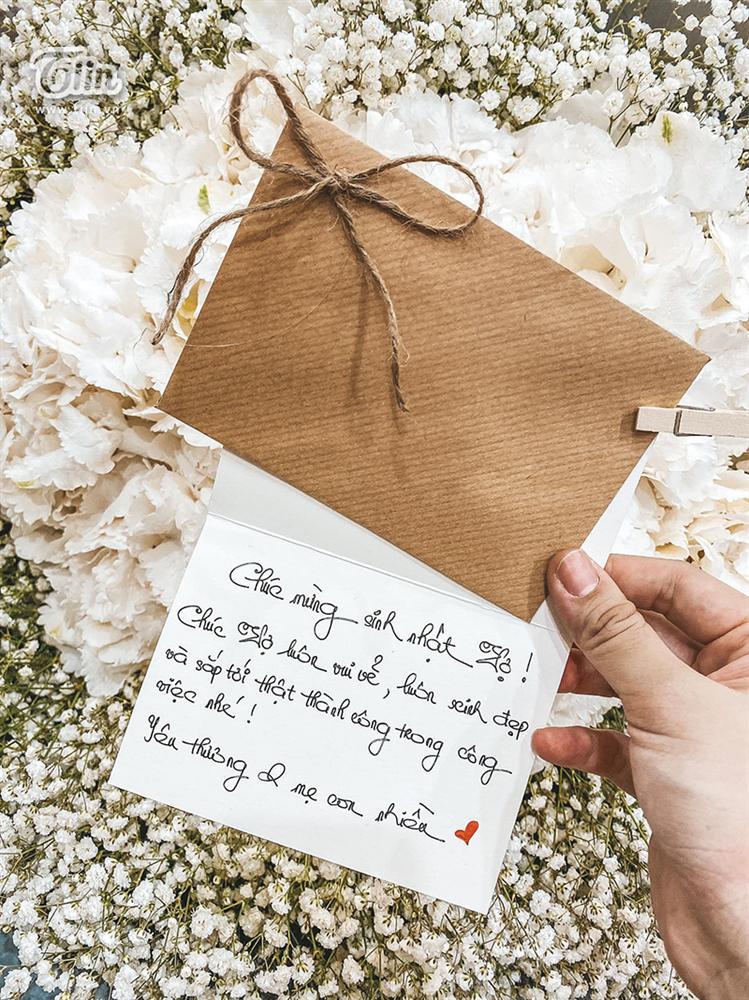 Tiin
Chúc mừng sinh nhật Vợ!
Chúc Vợ luôn vui vẻ, luôn xinh đẹp
và sắp tới thật thành công trong công
việc nhé!
Yêu thương 2 mẹ con nhiều